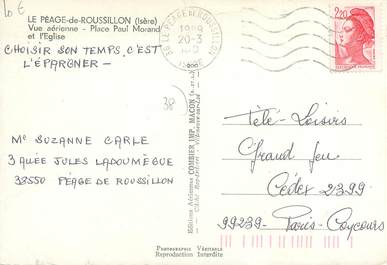 10 €
LE PÉAGE-de-ROUSSILLON (Isère)
Vue aérienne - Place Paul Morand
et l'Église
CHOISIR SON TEMPS, C'EST
L'ÉPARGNER -
38
Mc SUZANNE CARLE
3 ALLÉE JULES LADOUMÈGUE
38550 PÉAGE DE ROUSSILLON
38 LE PEAGE DE ROUSSILLON
1989
20-3
ISERE
2,20
Éditions Aériennes COMBIER IMP. MACON
Télé-Loisirs
Grand Jeu
Cédex 2399
99239 - Paris-Concours
Photographie Véritable
Reproduction Interdite